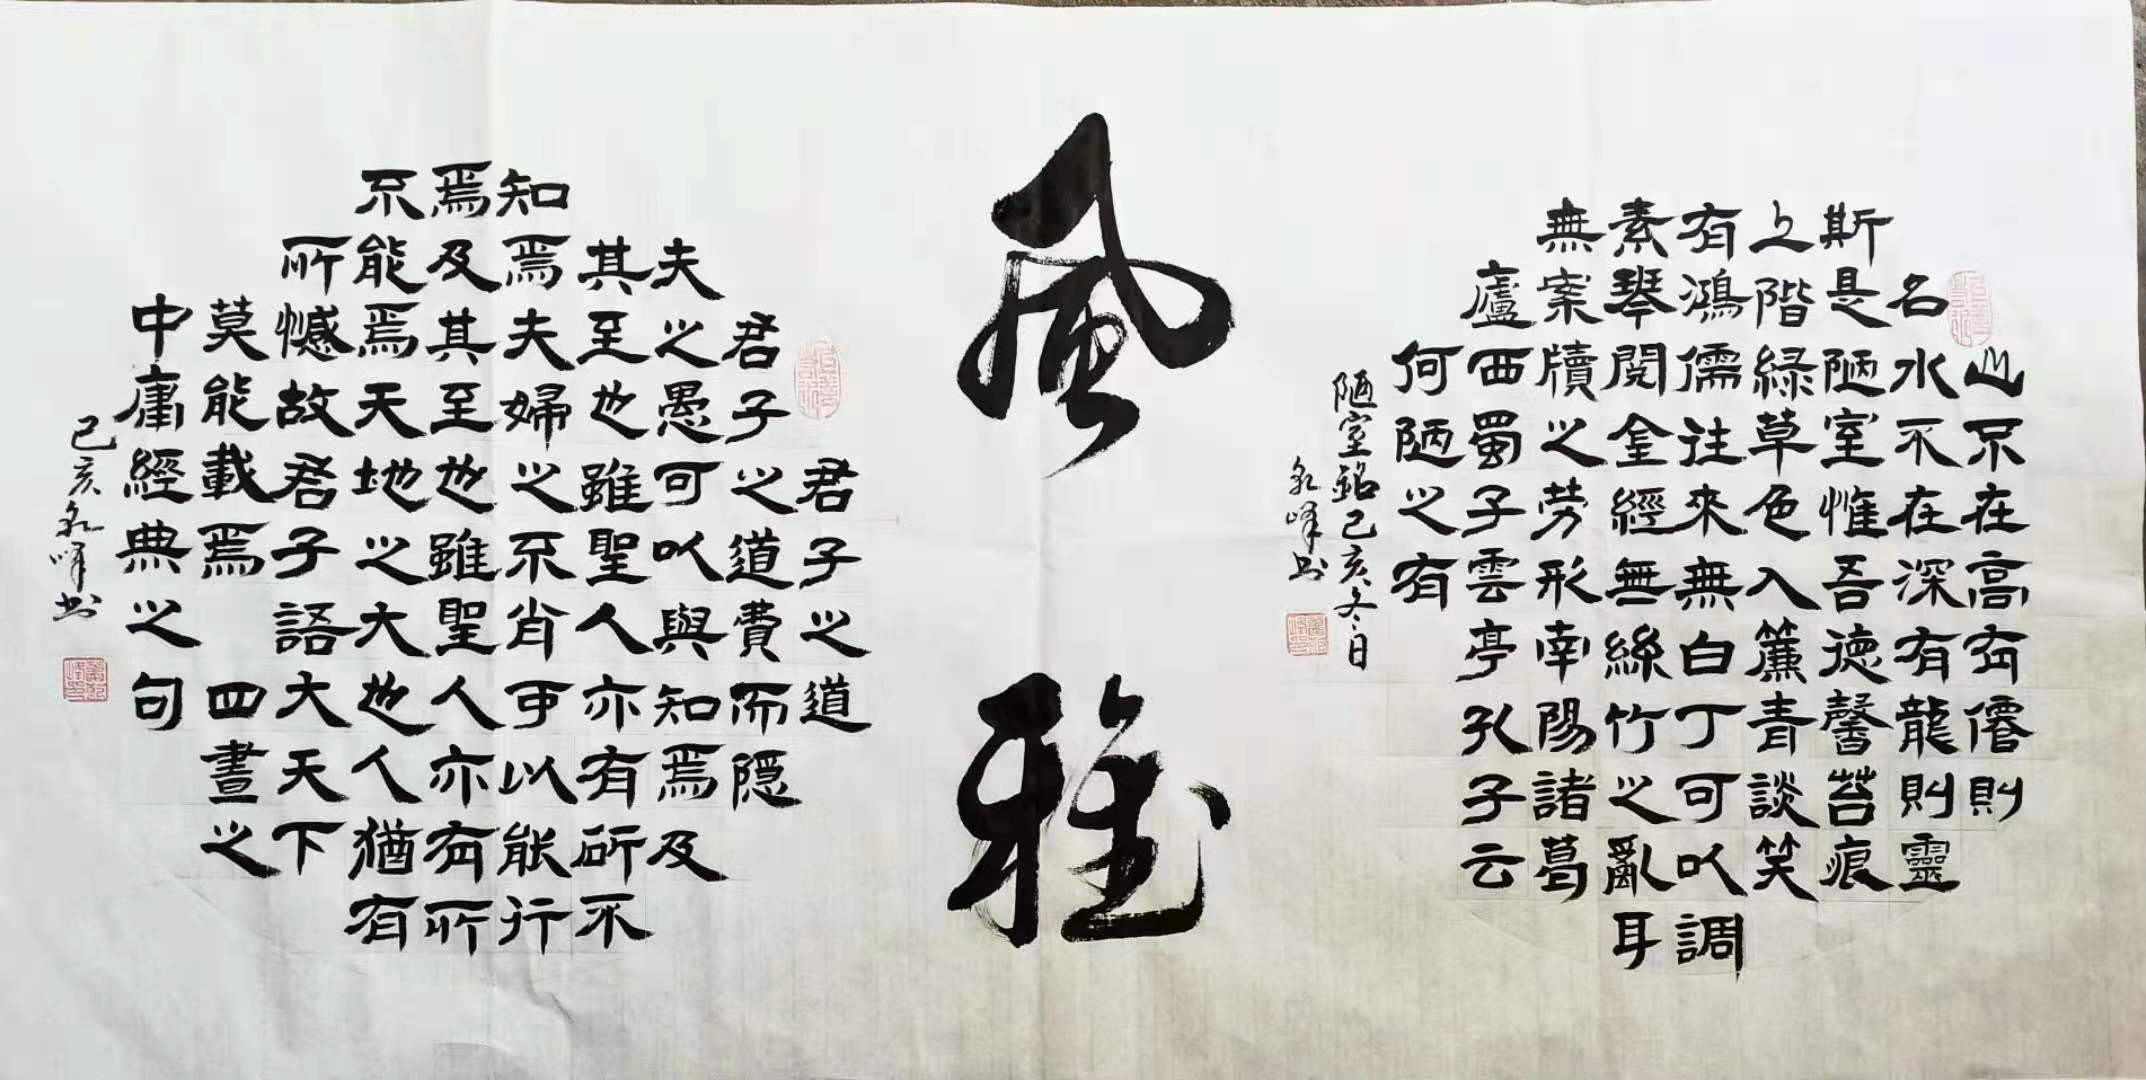 山不在高有僊則
名水不在深有龍則靈
斯是陋室惟吾德馨苔痕
上階緑草色入簾青談笑
有鴻儒往來無白丁可以調
素琴閲金經無絲竹之亂耳
無案牘之劳形南陽諸葛
廬西蜀子雲亭孔子云
何陋之有
陋室銘己亥冬日
永峰书
風雅
君子之道
君子之道費而隠
夫之愚可以與知焉及
其至也雖聖人亦有所不
知焉夫婦之不肖可以能行
焉及其至也雖聖人亦有所
不能焉天地之大也人猶有
所憾故君子語大天下
莫能載焉 四晝之
中庸經典之句
己亥永峰书